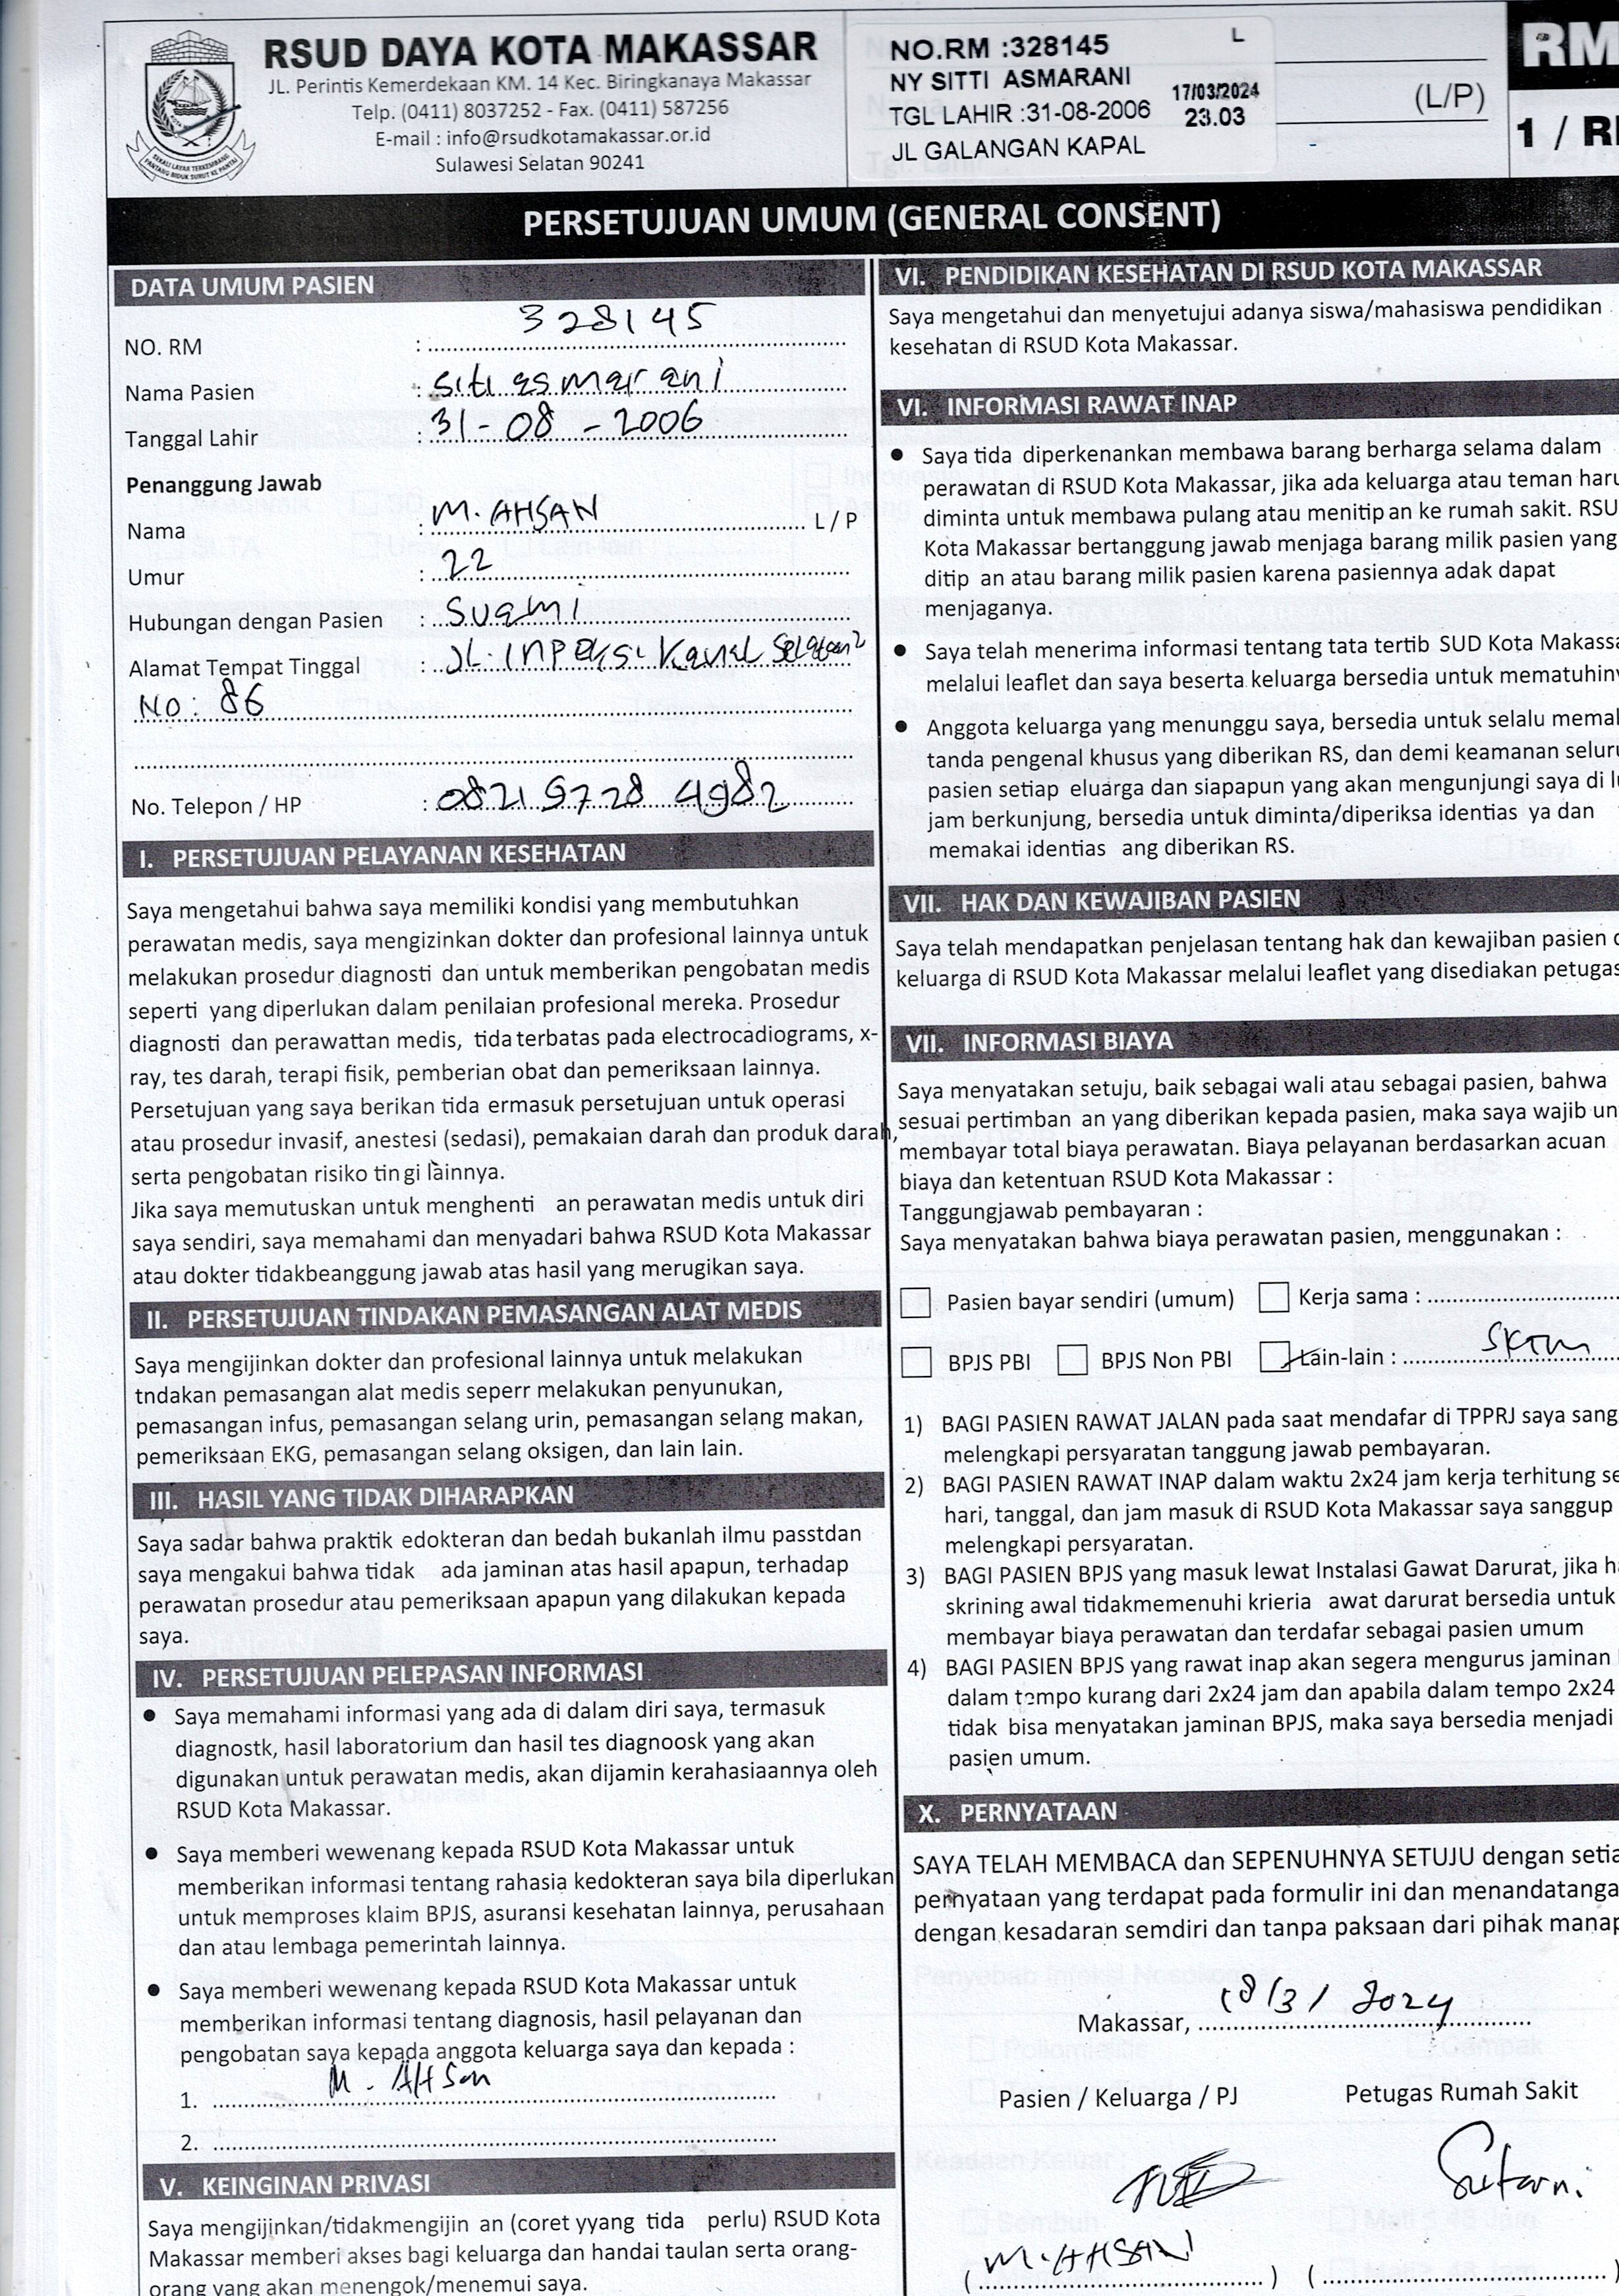 RSUD DAYA KOTA MAKASSAR
JL. Perintis Kemerdekaan KM. 14 Kec. Biringkanaya Makassar
Telp. (0411) 8037252 - Fax. (0411) 587256
E-mail : info@rsudkotamakassar.or.id
Sulawesi Selatan 90241
NO.RM :328145 L
NY SITTI ASMARANI
TGL LAHIR :31-08-2006
17/03/2024
23.03
JL GALANGAN KAPAL
(L/P)
RM
1 / RI
PERSETUJUAN UMUM (GENERAL CONSENT)
DATA UMUM PASIEN
NO. RM : 328145
Nama Pasien : Siti asmarani
Tanggal Lahir : 31 - 08 - 2006
Penanggung Jawab
Nama : M. AHSAN L / P
Umur : 22
Hubungan dengan Pasien : Suami
Alamat Tempat Tinggal : JL. INPEksi Kanal Selatan 2
No: 86
No. Telepon / HP : 0821 9728 4982
I. PERSETUJUAN PELAYANAN KESEHATAN
Saya mengetahui bahwa saya memiliki kondisi yang membutuhkan
perawatan medis, saya mengizinkan dokter dan profesional lainnya untuk
melakukan prosedur diagnosti dan untuk memberikan pengobatan medis
seperti yang diperlukan dalam penilaian profesional mereka. Prosedur
diagnosti dan perawattan medis, tida terbatas pada electrocadiograms, x-
ray, tes darah, terapi fisik, pemberian obat dan pemeriksaan lainnya.
Persetujuan yang saya berikan tida ermasuk persetujuan untuk operasi
atau prosedur invasif, anestesi (sedasi), pemakaian darah dan produk darah,
serta pengobatan risiko tin gi lainnya.
Jika saya memutuskan untuk menghenti an perawatan medis untuk diri
saya sendiri, saya memahami dan menyadari bahwa RSUD Kota Makassar
atau dokter tidakbeanggung jawab atas hasil yang merugikan saya.
II. PERSETUJUAN TINDAKAN PEMASANGAN ALAT MEDIS
Saya mengijinkan dokter dan profesional lainnya untuk melakukan
tndakan pemasangan alat medis seperr melakukan penyunukan,
pemasangan infus, pemasangan selang urin, pemasangan selang makan,
pemeriksaan EKG, pemasangan selang oksigen, dan lain lain.
III. HASIL YANG TIDAK DIHARAPKAN
Saya sadar bahwa praktik edokteran dan bedah bukanlah ilmu passtdan
saya mengakui bahwa tidak ada jaminan atas hasil apapun, terhadap
perawatan prosedur atau pemeriksaan apapun yang dilakukan kepada
saya.
IV. PERSETUJUAN PELEPASAN INFORMASI
● Saya memahami informasi yang ada di dalam diri saya, termasuk
diagnostk, hasil laboratorium dan hasil tes diagnoosk yang akan
digunakan untuk perawatan medis, akan dijamin kerahasiaannya oleh
RSUD Kota Makassar.
● Saya memberi wewenang kepada RSUD Kota Makassar untuk
memberikan informasi tentang rahasia kedokteran saya bila diperlukan
untuk memproses klaim BPJS, asuransi kesehatan lainnya, perusahaan
dan atau lembaga pemerintah lainnya.
● Saya memberi wewenang kepada RSUD Kota Makassar untuk
memberikan informasi tentang diagnosis, hasil pelayanan dan
pengobatan saya kepada anggota keluarga saya dan kepada :
1. M. AHSan
2.
V. KEINGINAN PRIVASI
Saya mengijinkan/tidakmengijin an (coret yyang tida perlu) RSUD Kota
Makassar memberi akses bagi keluarga dan handai taulan serta orang-
orang yang akan menengok/menemui saya.
VI. PENDIDIKAN KESEHATAN DI RSUD KOTA MAKASSAR
Saya mengetahui dan menyetujui adanya siswa/mahasiswa pendidikan
kesehatan di RSUD Kota Makassar.
VI. INFORMASI RAWAT INAP
● Saya tida diperkenankan membawa barang berharga selama dalam
perawatan di RSUD Kota Makassar, jika ada keluarga atau teman haru
diminta untuk membawa pulang atau menitip an ke rumah sakit. RSU
Kota Makassar bertanggung jawab menjaga barang milik pasien yang
ditip an atau barang milik pasien karena pasiennya adak dapat
menjaganya.
● Saya telah menerima informasi tentang tata tertib SUD Kota Makassa
melalui leaflet dan saya beserta keluarga bersedia untuk mematuhiny
● Anggota keluarga yang menunggu saya, bersedia untuk selalu memak
tanda pengenal khusus yang diberikan RS, dan demi keamanan seluru
pasien setiap eluarga dan siapapun yang akan mengunjungi saya di lu
jam berkunjung, bersedia untuk diminta/diperiksa identias ya dan
memakai identias ang diberikan RS.
VII. HAK DAN KEWAJIBAN PASIEN
Saya telah mendapatkan penjelasan tentang hak dan kewajiban pasien d
keluarga di RSUD Kota Makassar melalui leaflet yang disediakan petugas
VII. INFORMASI BIAYA
Saya menyatakan setuju, baik sebagai wali atau sebagai pasien, bahwa
sesuai pertimban an yang diberikan kepada pasien, maka saya wajib un
membayar total biaya perawatan. Biaya pelayanan berdasarkan acuan
biaya dan ketentuan RSUD Kota Makassar :
Tanggungjawab pembayaran :
Saya menyatakan bahwa biaya perawatan pasien, menggunakan :
Pasien bayar sendiri (umum) Kerja sama :
BPJS PBI BPJS Non PBI Lain-lain : SKTM
1) BAGI PASIEN RAWAT JALAN pada saat mendafar di TPPRJ saya sang
melengkapi persyaratan tanggung jawab pembayaran.
2) BAGI PASIEN RAWAT INAP dalam waktu 2x24 jam kerja terhitung se
hari, tanggal, dan jam masuk di RSUD Kota Makassar saya sanggup
melengkapi persyaratan.
3) BAGI PASIEN BPJS yang masuk lewat Instalasi Gawat Darurat, jika ha
skrining awal tidakmemenuhi krieria awat darurat bersedia untuk
membayar biaya perawatan dan terdafar sebagai pasien umum
4) BAGI PASIEN BPJS yang rawat inap akan segera mengurus jaminan
dalam tempo kurang dari 2x24 jam dan apabila dalam tempo 2x24
tidak bisa menyatakan jaminan BPJS, maka saya bersedia menjadi
pasien umum.
X. PERNYATAAN
SAYA TELAH MEMBACA dan SEPENUHNYA SETUJU dengan setia
pernyataan yang terdapat pada formulir ini dan menandatanga
dengan kesadaran semdiri dan tanpa paksaan dari pihak manap
Makassar, 18/3/ 2024
Pasien / Keluarga / PJ Petugas Rumah Sakit
Sutarni
(M. AHSAN) (